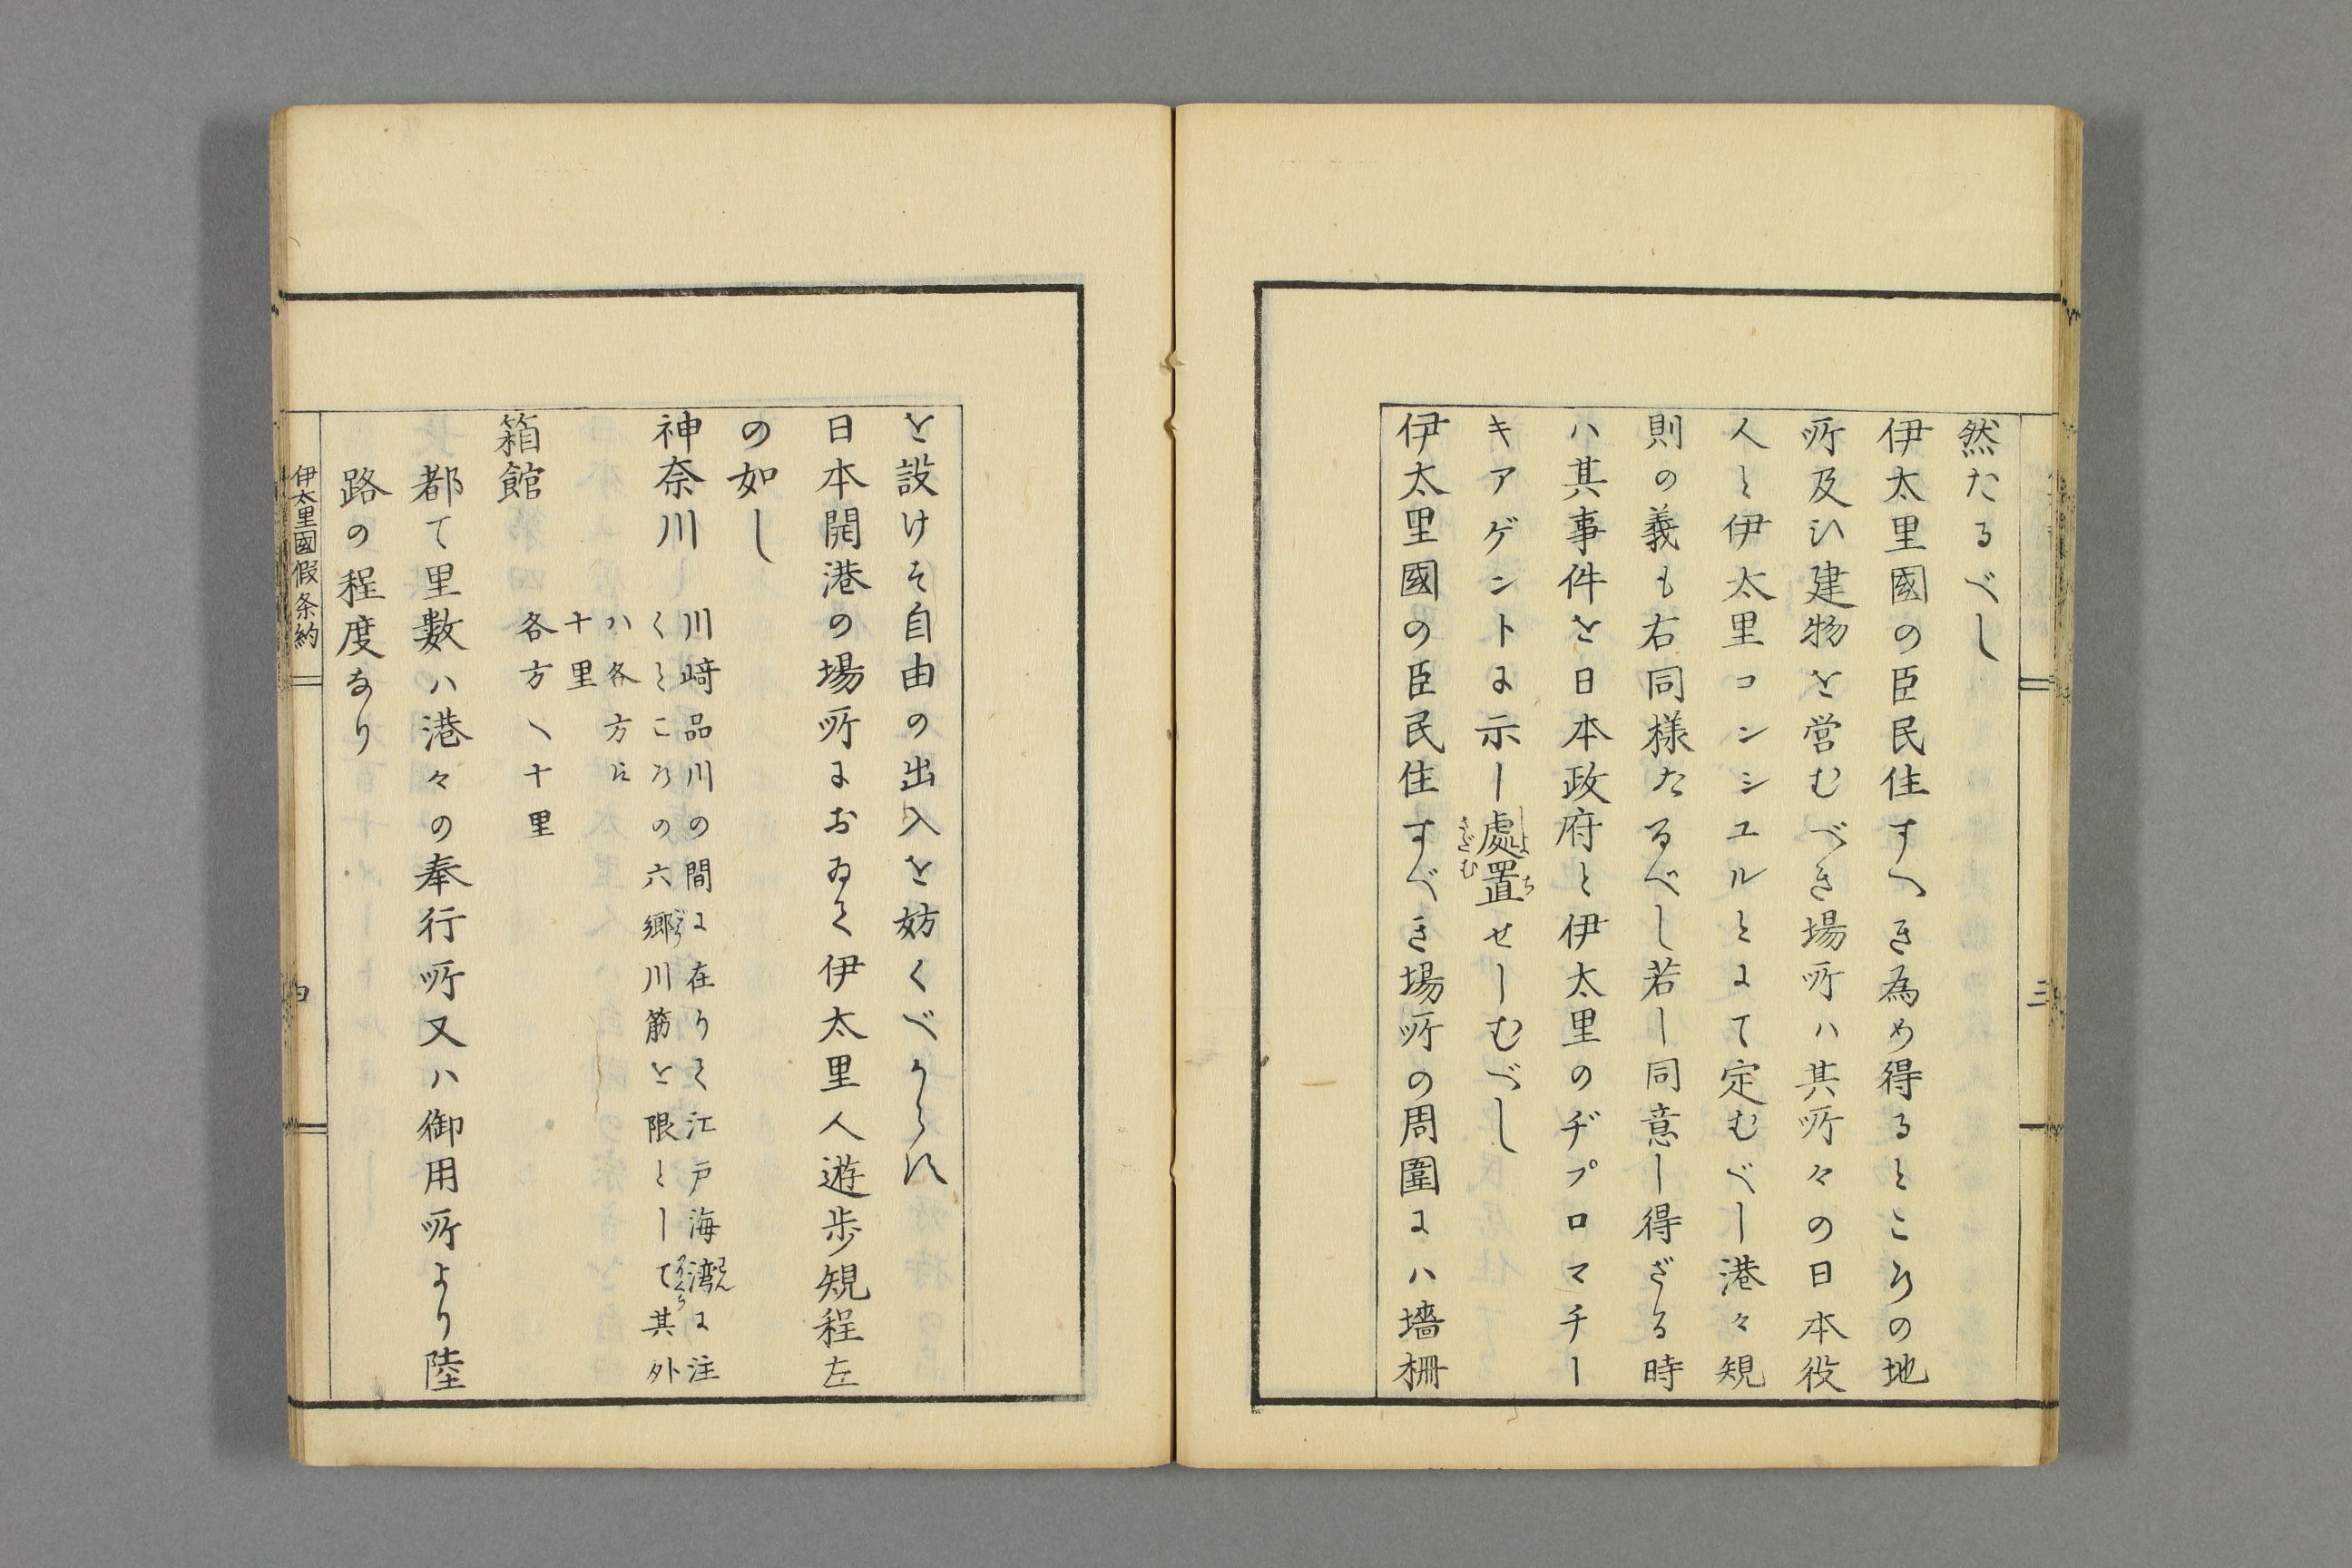 然たるべし
伊太里國の臣民住すへき為め得るところの地
所及ひ建物を営むべき場所ハ其所々の日本役
人と伊太里コンシユルとにて定むべし港々規
則の義も右同様たるべし若し同意し得ざる時
ハ其事件を日本政府と伊太里のヂプロマチー
キアゲントに示し處置せしむべし
伊太里國の臣民住すべき場所の周圍にハ墻柵
三
を設けす自由の出入を妨くべからす
日本開港の場所におゐて伊太里人遊歩規程左
の如し
神奈川
川﨑品川の間に在りて江戸海湾に注
くところの六郷川筋を限として其外
ハ各方に
十里
箱館
各方へ十里
都て里数ハ港々の奉行所又ハ御用所より陸
路の程度なり
伊太里國假条約